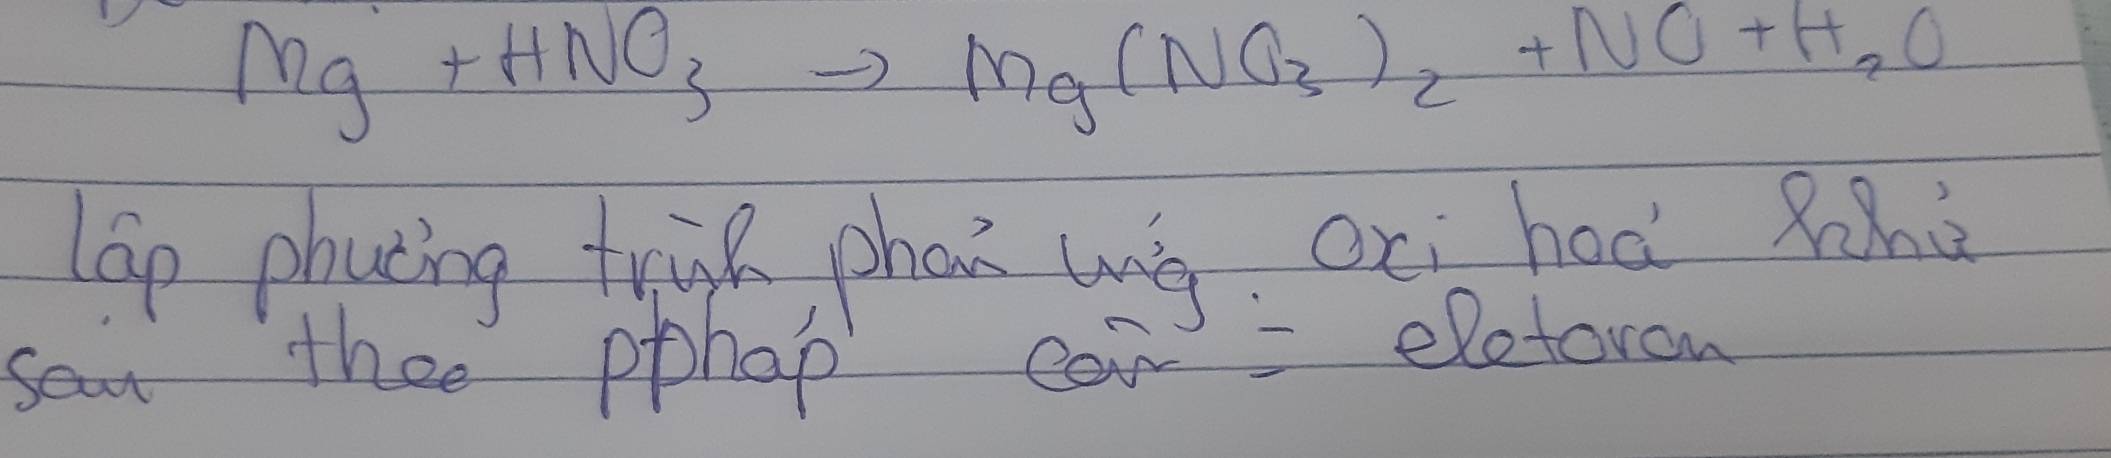 Mg + HNO₃ → Mg(NO₃)₂ + NO + H₂O
lập phương trình phản ứng oxi hoá khử
sau theo ppháp cân = eletoron